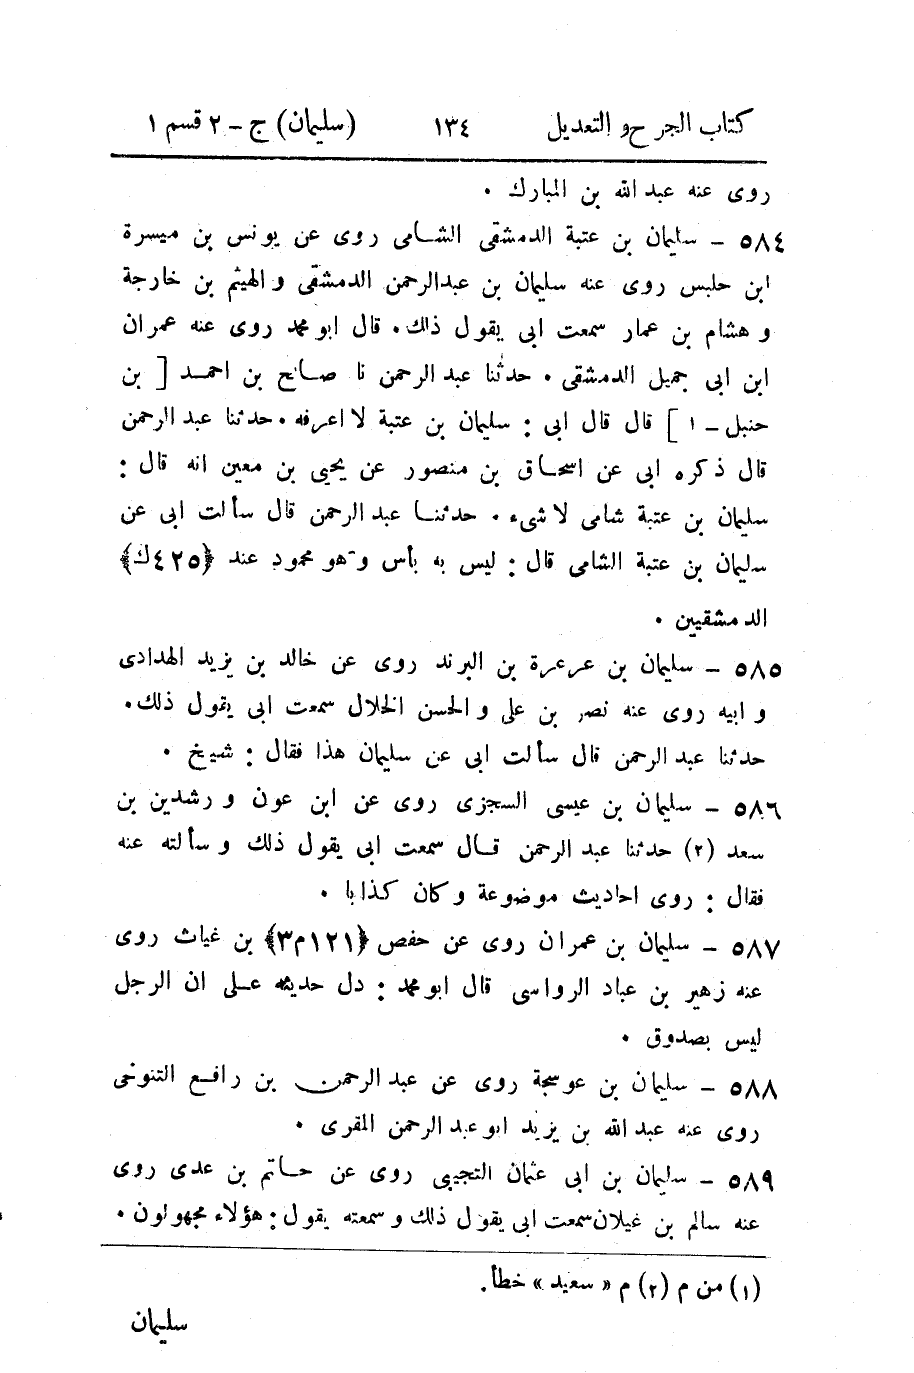 كتاب الجرح و التعديل ١٣٤ (سليمان) ج - ٢ قسم ١
روى عنه عبد الله بن المبارك .
٥٨٤ - سليمان بن عتبة الدمشقى الشامى روى عن يونس بن ميسرة
ابن حلبس روى عنه سليمان بن عبدالرحمن الدمشقى و الهيثم بن خارجة
و هشام بن عمار سمعت ابى يقول ذلك. قال ابو محمد روى عنه عمران
ابن ابى جميل الدمشقى . حدثنا عبد الرحمن نا صالح بن احمد [ بن
حنبل - ١ ] قال قال ابى : سليمان بن عتبة لا اعرفه . حدثنا عبد الرحمن
قال ذكره ابى عن اسحاق بن منصور عن يحيى بن معين انه قال :
سليمان بن عتبة شامى لا شىء . حدثنا عبد الرحمن قال سألت ابى عن
سليمان بن عتبة الشامى قال : ليس به بأس و هو محمود عند ﴿٤٢٥ك﴾
الدمشقيين .
٥٨٥ - سليمان بن عرعرة بن البرند روى عن خالد بن يزيد الهدادى
و ابيه روى عنه نصر بن على و الحسن الخلال سمعت ابى يقول ذلك.
حدثنا عبد الرحمن قال سألت ابى عن سليمان هذا فقال : شيخ .
٥٨٦ - سليمان بن عيسى السجزى روى عن ابن عون و رشدين بن
سعد (٢) حدثنا عبد الرحمن قال سمعت ابى يقول ذلك و سألته عنه
فقال : روى احاديث موضوعة و كان كذابا .
٥٨٧ - سليمان بن عمران روى عن حفص ﴿١٢١م٣﴾ بن غياث روى
عنه زهير بن عباد الرواسى قال ابو محمد : دل حديثه على ان الرجل
ليس بصدوق .
٥٨٨ - سليمان بن عوسجة روى عن عبد الرحمن بن رافع التنوخى
روى عنه عبد الله بن يزيد ابو عبد الرحمن المقرى .
٥٨٩ - سليمان بن ابى عثمان التجيبى روى عن حاتم بن عدى روى
عنه سالم بن غيلان سمعت ابى يقول ذلك و سمعته يقول : هؤلاء مجهولون .
(١) من م (٢) م « سعيد » خطأ.
سليمان